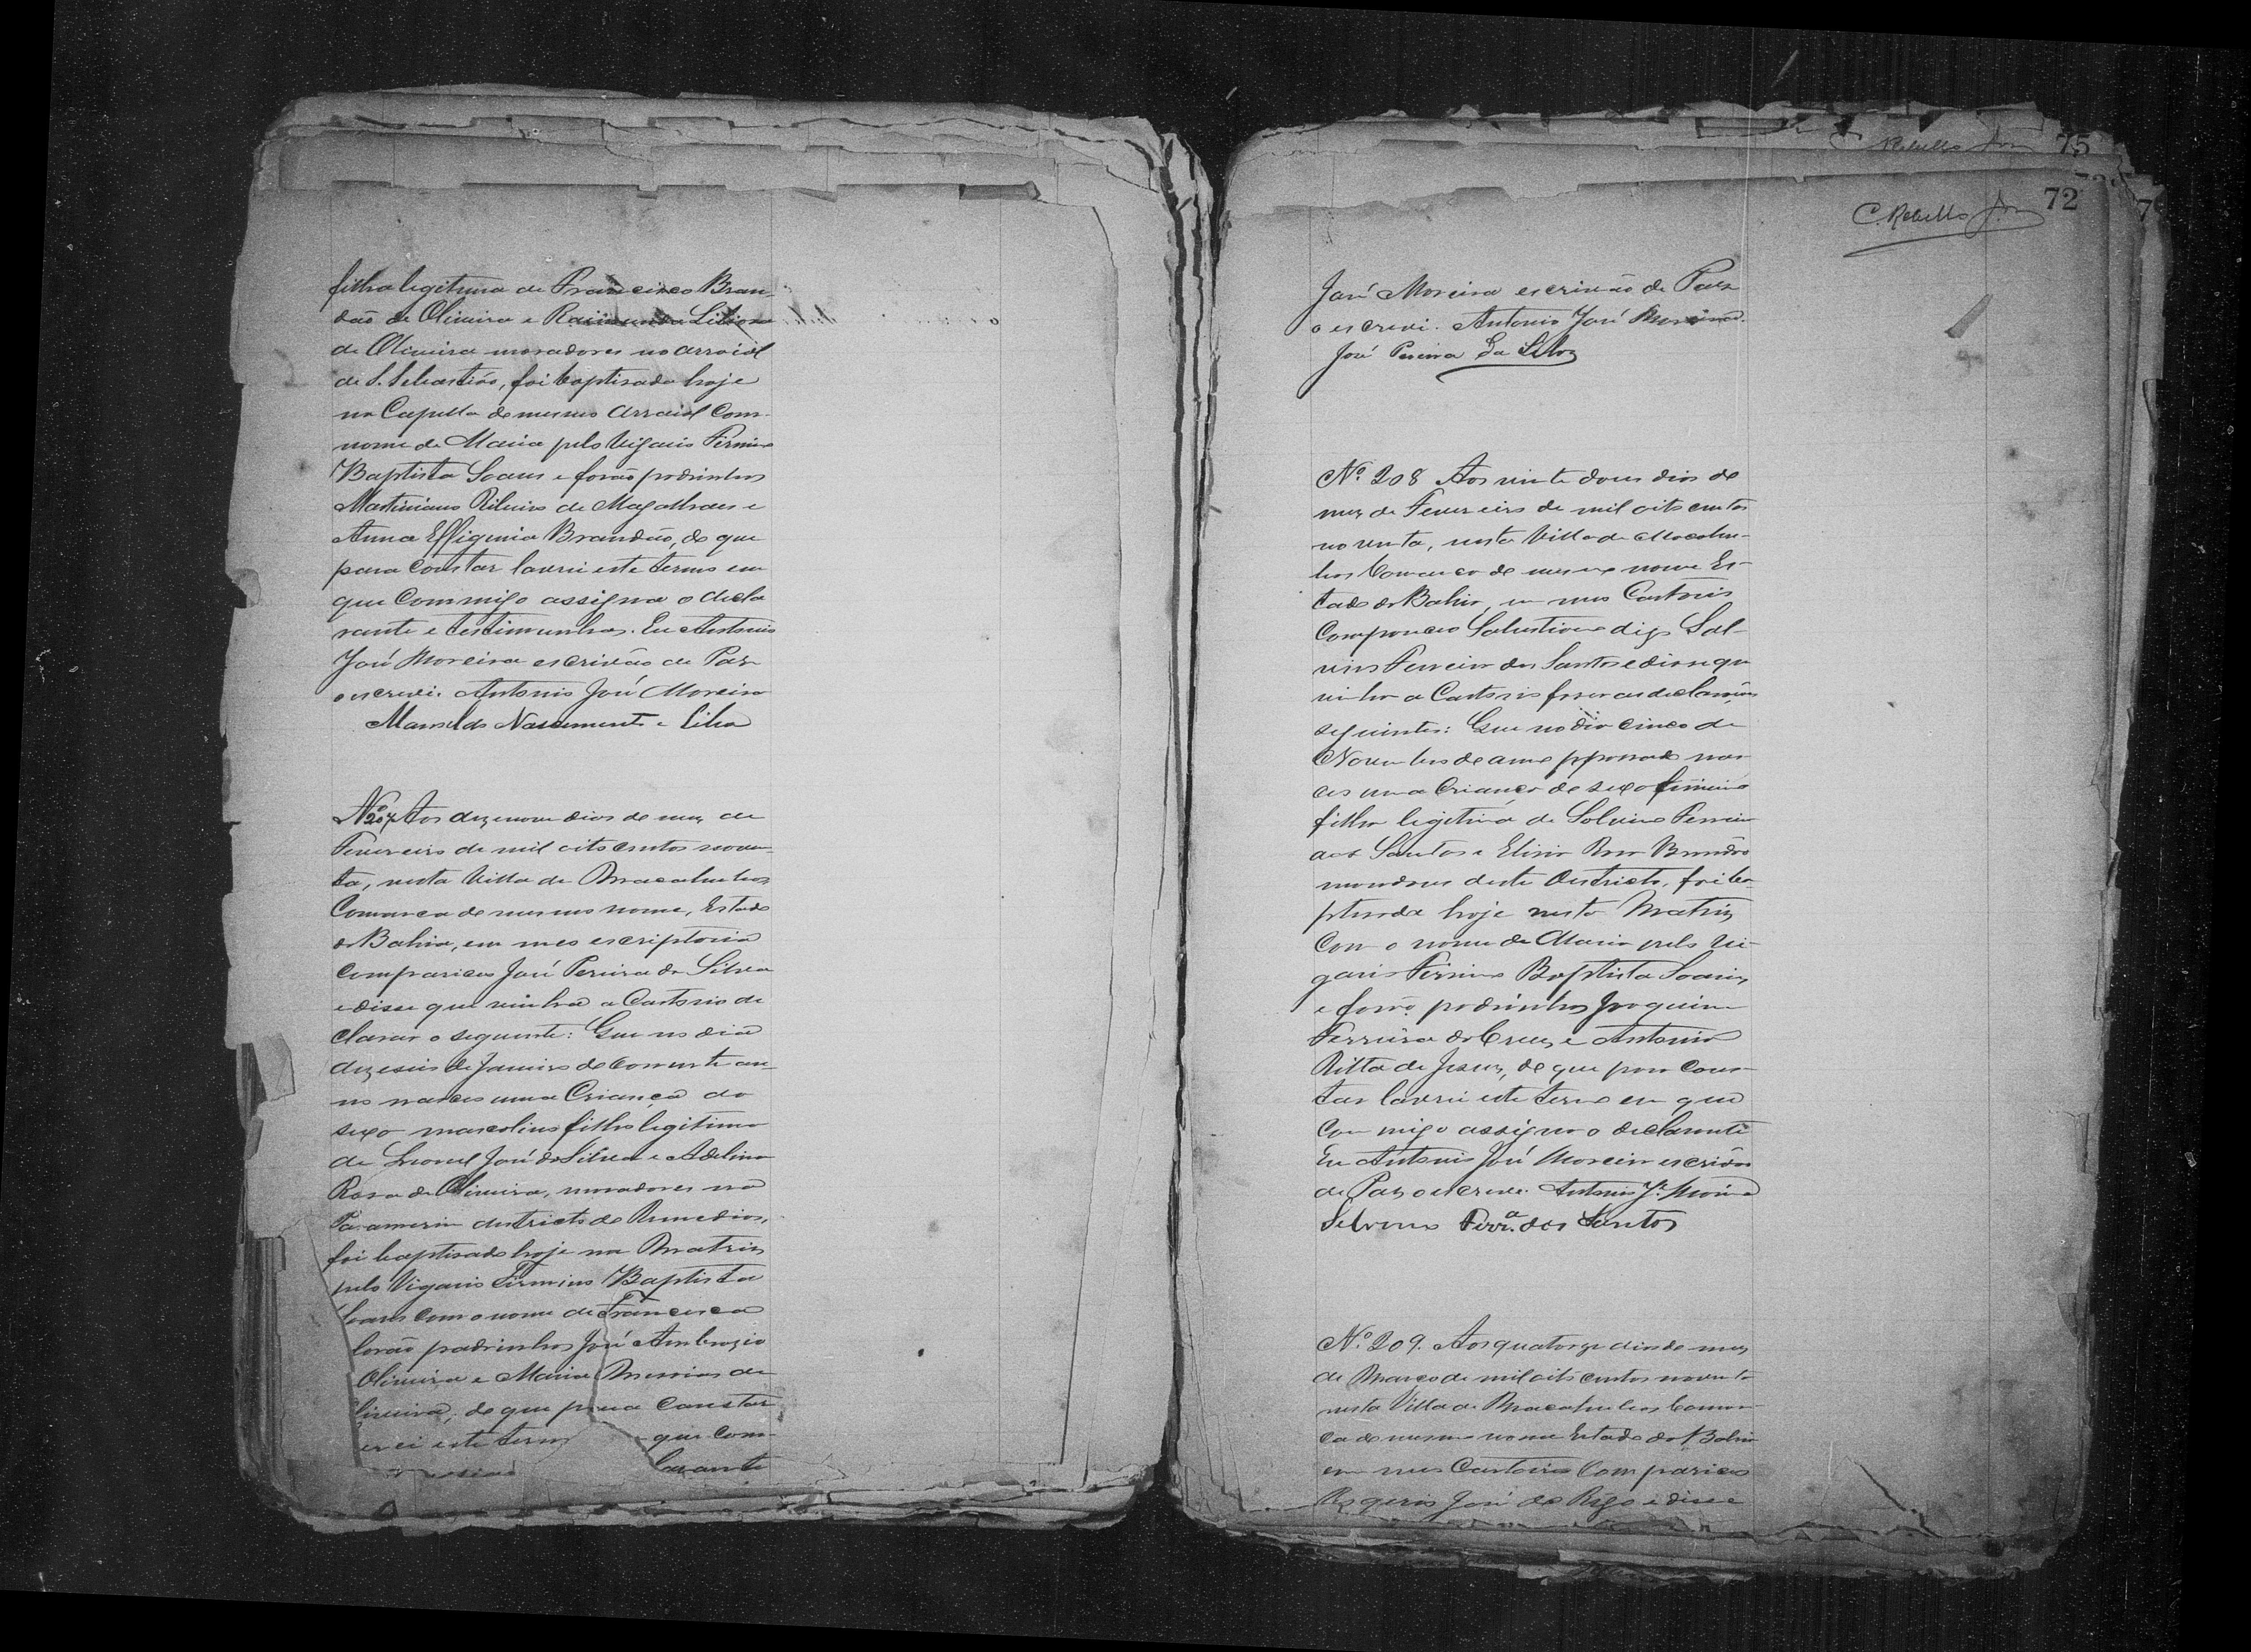 filha legitima de Francisco Bran-
dão de Oliveira e Raimunda
de Oliveira moradores no arraial
de S. Sebastião, foi baptisada hoje
na Capella do mesmo Arraial com
nome de Maria pelo Vigario Firmino
Baptista Soares e forão padrinhos
Martiniano Ribeiro de Magalhaes e
Anna Effigenia Brandão, do que
para constar lavrei este termo em
que commigo assigna o decla
rante e testimunhas. Eu Antonio
José Moreira escrivão de Paz
o escrevi. Antonio José Moreira
Manoel do Nascimento e Silva
Nº 207 Aos dezenove dias do mez de
Fevereiro de mil oito centos noven-
ta, nesta Villa de Macahubas
Comarca do mesmo nome, Estado
da Bahia, em meo escriptorio
compariceo José Pereira da Silva
e disse que vinha a Cartorio de
clarar o seguente: Que no dia
dezeseis de Janeiro do corrente an-
no nasceo uma Criança do
sexo mascolino filho legitimo
de Leonel José da Silva e Adelina
Rosa de Oliveira, moradores no
Paramerim destricto de Remedios,
foi baptisado hoje na Matriz
pelo Vigario Firmino Baptista
Soares com o nome de Francisco
forão padrinhos José Ambrozio
Oliveira e Maria Messias de
liveira, do que para constar
este termo que com
larante
75
72
C. Rebello
José Moreira escrivão de Paz
o escrevi. Antonio José Moreira.
José Pereira da Silva
Nº 208 Aos vinte dous dias do
mez de Fevereiro de mil oito centos
noventa, nesta Villa de Macahu-
bas Comarca do mesmo nome Es-
tado da Bahia, em meo Cartorio
Compareceo Salustiano digo Sal-
vino Ferreira dos Santos e disse que
vinha a Cartorio fazer as declarações
seguintes: Que no dia cinco de
Novembro do anno ppassado nas-
ceo uma Criança do sexo feminino
filha legitima de Salvino Ferreira
dos Santos e Elisia Rosa Brandão
moradores deste Destricto, foi ba-
ptisada hoje nesta Matriz
com o nome de Maria pelo Vi-
gario Firmino Baptista Soares,
e forão padrinhos Joaquim
Ferreira da Cruz e Antonia
Ritta de Jesus, do que para cons-
tar lavrei este termo em que
commigo assigna o declarante
Eu Antonio José Moreira escrivão
de Paz o escrevi. Antonio Jé. Moreira
Selvino Ferrª. dos Santos
Nº 209. Aos quatorze dias do mez
de Março de mil oito centos noventa
nesta Villa de Macahubas Comar-
ca do mesmo nome Estado da Bahia
em meo Cartorio Compariceo
Rogerio José do Rego e disse